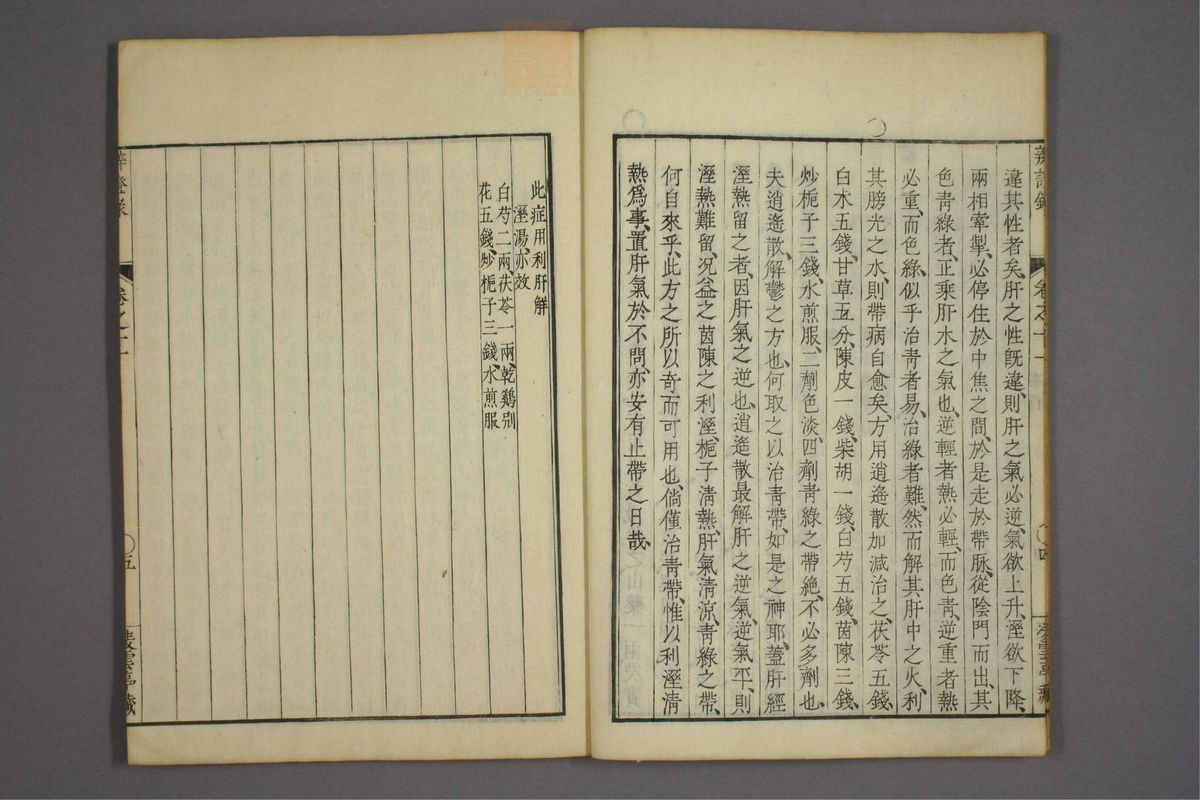 違其性者矣、肝之性旣違、則肝之氣必逆、氣欲上升、溼欲下降、
兩相牽掣、必停住於中焦之間、於是走於帶脉、從陰門而出、其
色靑綠者、正乘肝木之氣也、逆輕者熱必輕、而色靑、逆重者熱
必重、而色綠、似乎治靑者易、治綠者難、然而解其肝中之火、利
其膀光之水、則帶病自愈矣、方用逍遙散加減治之、茯苓五錢、
白朮五錢、甘草五分、陳皮一錢、柴胡一錢、白芍五錢、茵陳三錢、
炒梔子三錢、水煎服、二劑色淡、四劑靑綠之帶絶、不必多劑也、
夫逍遙散、解鬱之方也、何取之以治靑帶、如是之神耶、蓋肝經
溼熱留之者、因肝氣之逆也、逍遙散最解肝之逆氣、逆氣平、則
溼熱難留、况益之茵陳之利溼、梔子淸熱、肝氣淸凉、靑綠之帶、
何自來乎、此方之所以奇而可用也、倘僅治靑帶、惟以利溼淸
熱爲事、置肝氣於不問、亦安有止帶之日哉、
此症用利肝解
溼湯、亦效
白芍二兩、茯苓一兩、乾鷄冠
花五錢、炒梔子三錢、水煎服
卷之十一
五